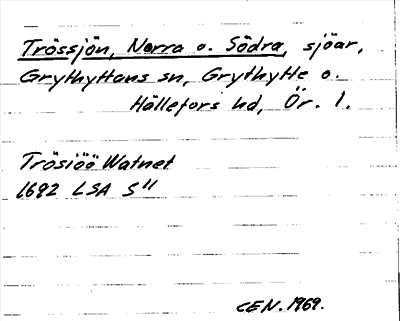 Trössjön, Norra o. Södra, sjöar,
Grythyttans sn, Grythytte o.
Hällefors hd, Ör. l.
Trösiöö Watnet
1692 LSA S11
CEN. 1969.